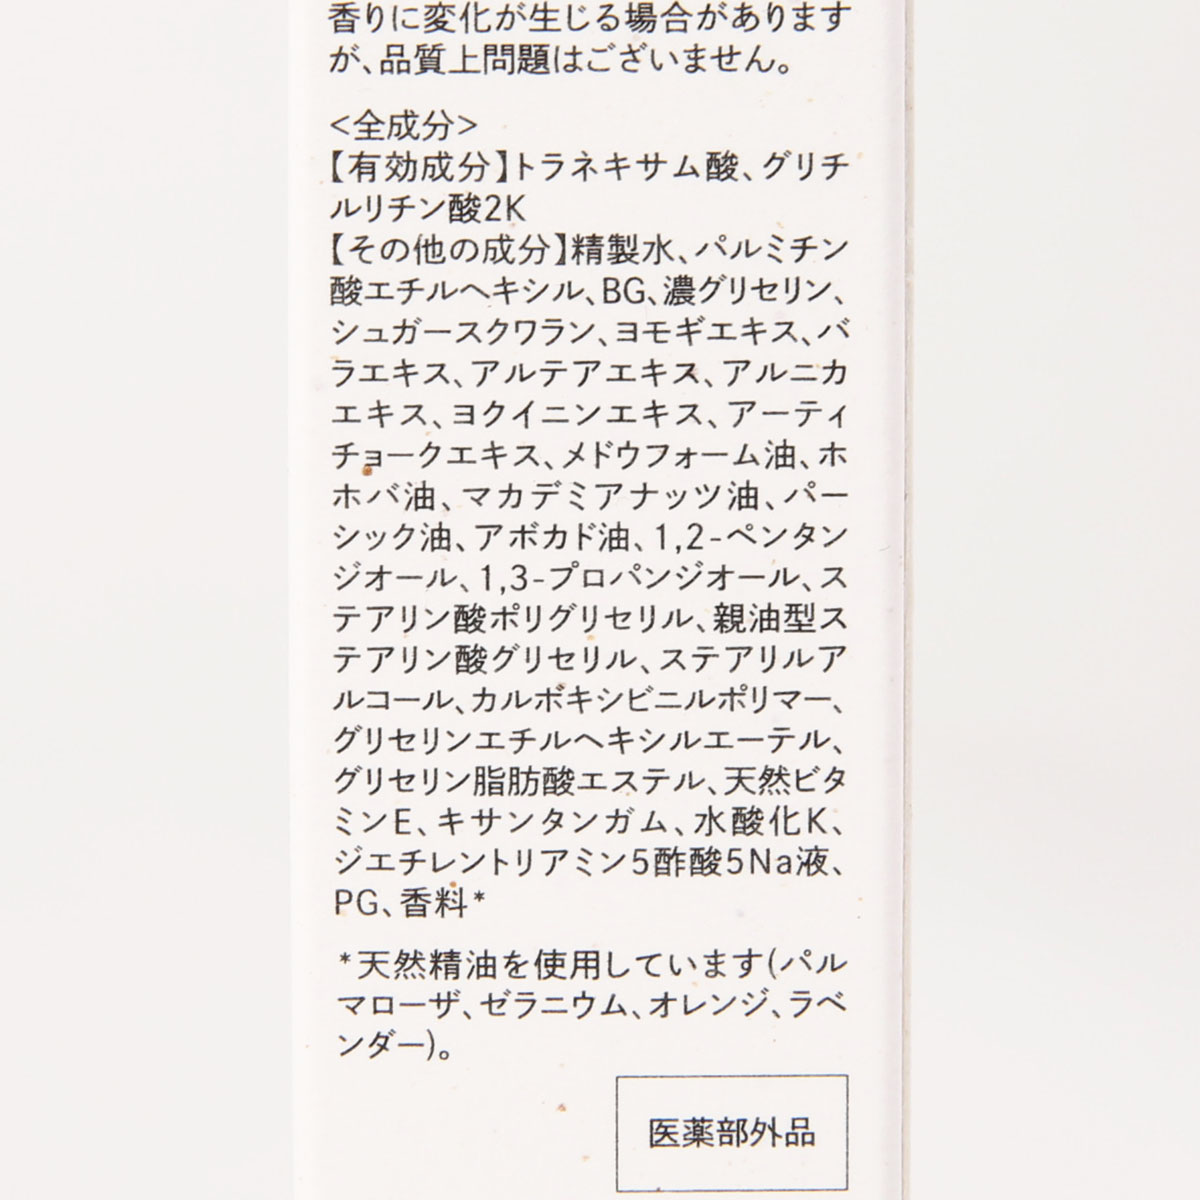 香りに変化が生じる場合があります
が、品質上問題はございません。
<全成分>
【有効成分】トラネキサム酸、グリチ
ルリチン酸2K
【その他の成分】精製水、パルミチン
酸エチルヘキシル、BG、濃グリセリン、
シュガースクワラン、ヨモギエキス、バ
ラエキス、アルテアエキス、アルニカ
エキス、ヨクイニンエキス、アーティ
チョークエキス、メドウフォーム油、ホ
ホバ油、マカデミアナッツ油、パー
シック油、アボカド油、1,2-ペンタン
ジオール、1,3-プロパンジオール、ス
テアリン酸ポリグリセリル、親油型ス
テアリン酸グリセリル、ステアリルア
ルコール、カルボキシビニルポリマー、
グリセリンエチルヘキシルエーテル、
グリセリン脂肪酸エステル、天然ビタ
ミンE、キサンタンガム、水酸化K、
ジエチレントリアミン5酢酸5Na液、
PG、香料*
*天然精油を使用しています(パル
マローザ、ゼラニウム、オレンジ、ラベ
ンダー)。
医薬部外品